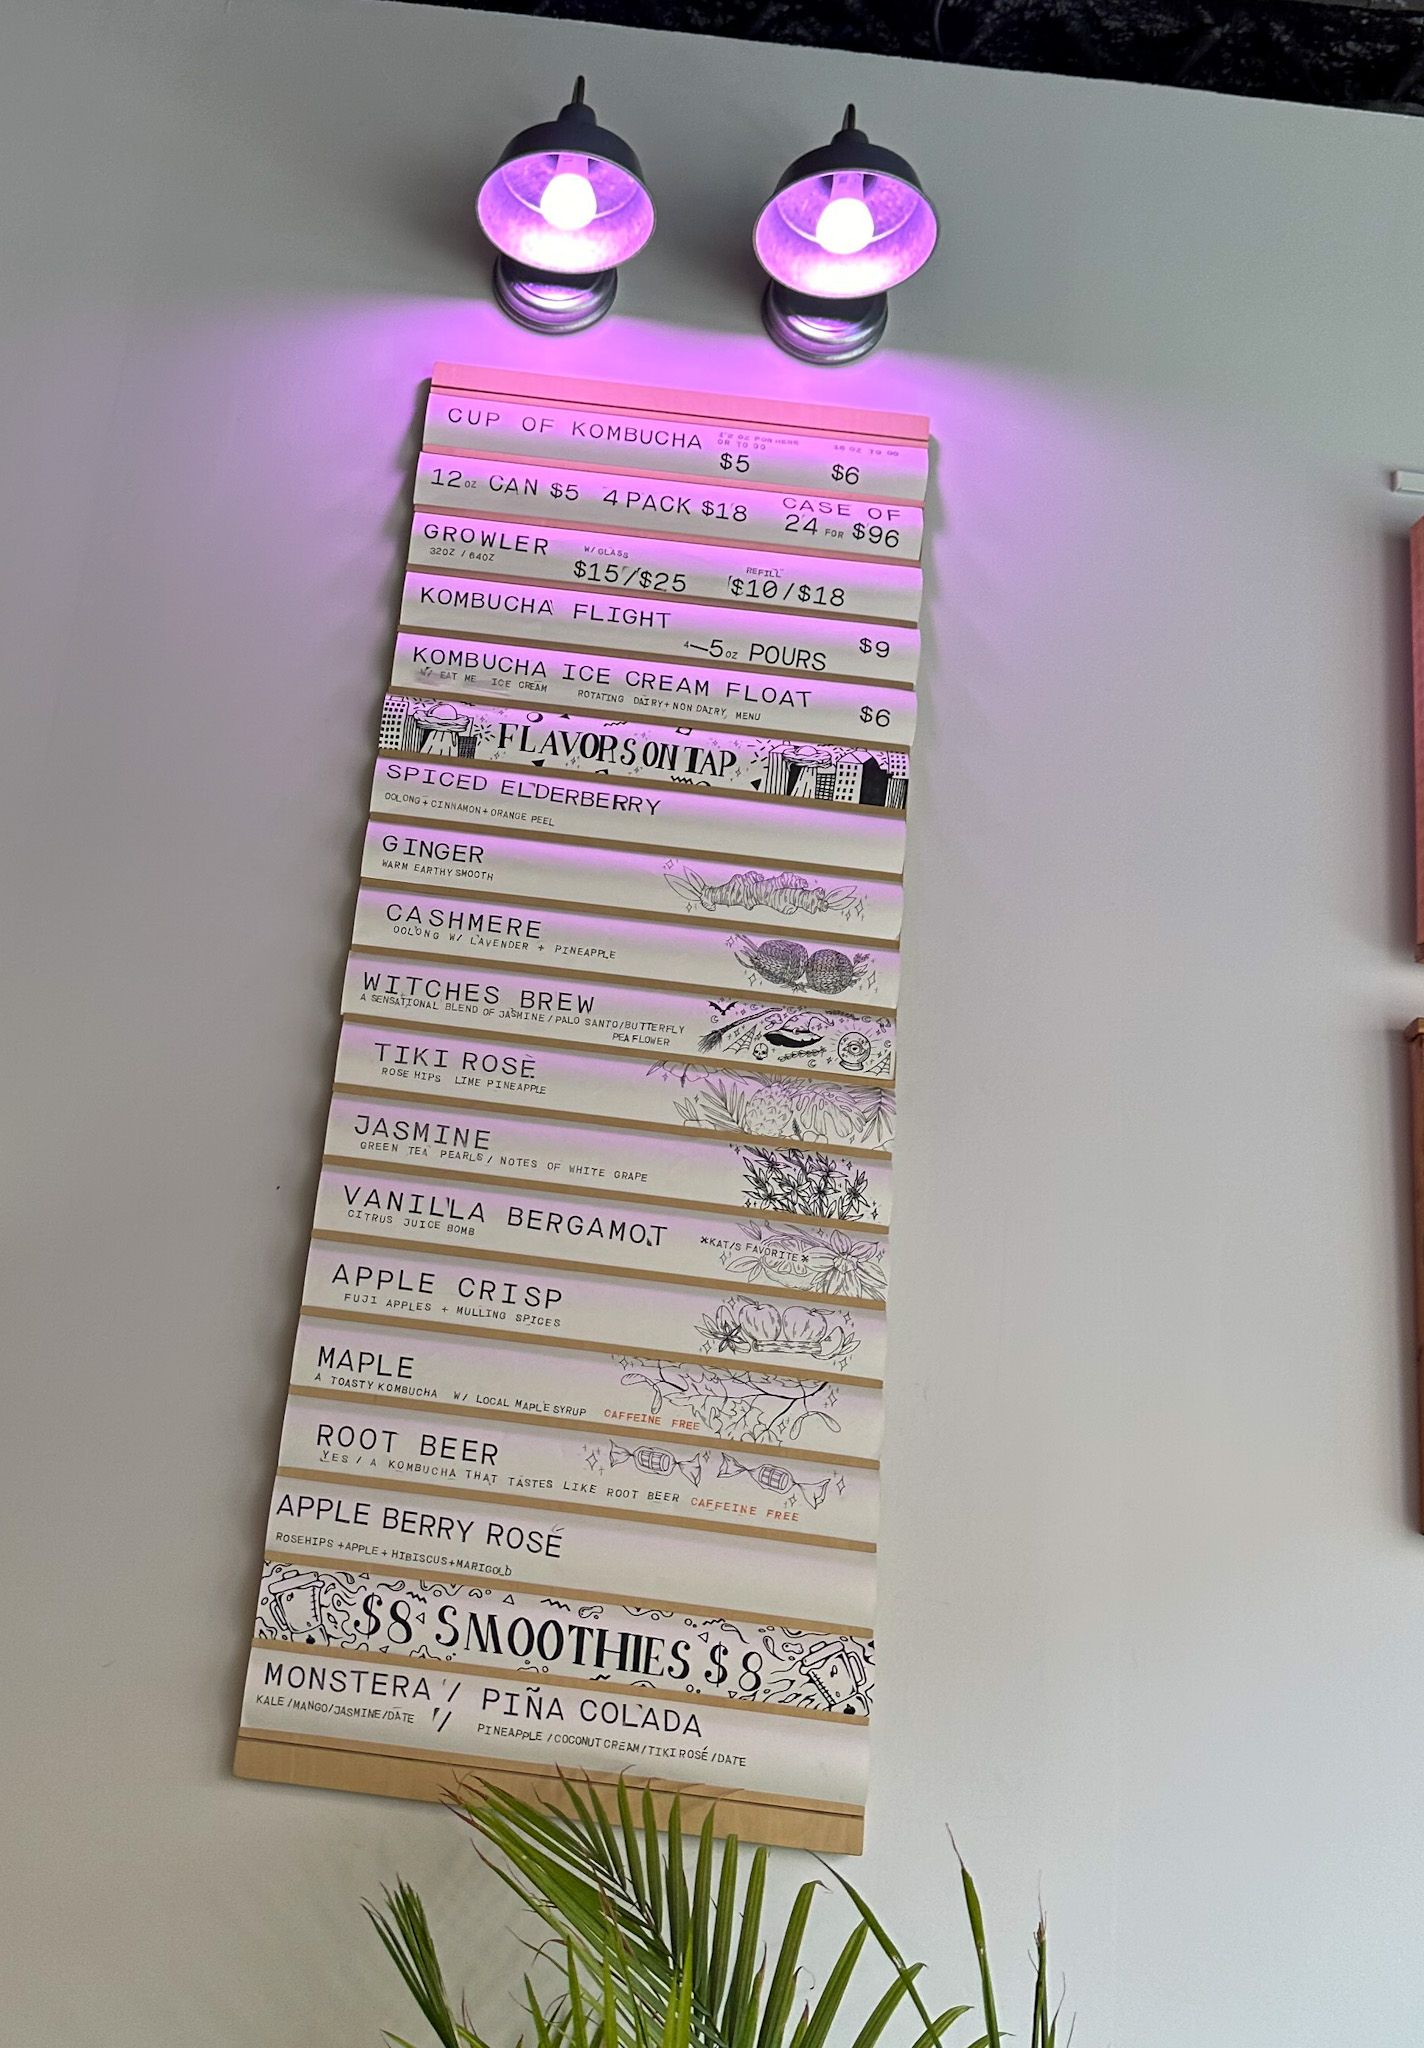 CUP OF KOMBUCHA
OR TO GO
16 OZ TO GO
$5 $6
12oz CAN $5 4 PACK $18 CASE OF
24 FOR $96
GROWLER W/GLASS REFILL
32OZ / 64OZ $15/$25 $10/$18
KOMBUCHA FLIGHT
4—5oz POURS $9
KOMBUCHA ICE CREAM FLOAT
W/ EAT ME ICE CREAM ROTATING DAIRY+NON DAIRY MENU $6
FLAVORS ON TAP
SPICED ELDERBERRY
OOLONG+CINNAMON+ORANGE PEEL
GINGER
WARM EARTHY SMOOTH
CASHMERE
OOLONG W/ LAVENDER + PINEAPPLE
WITCHES BREW
A SENSATIONAL BLEND OF JASMINE/PALO SANTO/BUTTERFLY
PEA FLOWER
TIKI ROSÈ
ROSE HIPS LIME PINEAPPLE
JASMINE
GREEN TEA PEARLS/ NOTES OF WHITE GRAPE
VANILLA BERGAMOT
CITRUS JUICE BOMB *KAT/S FAVORITE*
APPLE CRISP
FUJI APPLES + MULLING SPICES
MAPLE
A TOASTY KOMBUCHA W/ LOCAL MAPLE SYRUP CAFFEINE FREE
ROOT BEER
YES / A KOMBUCHA THAT TASTES LIKE ROOT BEER CAFFEINE FREE
APPLE BERRY ROSÉ
ROSEHIPS +APPLE+HIBISCUS+MARIGOLD
$8 SMOOTHIES $8
MONSTERA / PIÑA COLADA
KALE/MANGO/JASMINE/DATE / PINEAPPLE/COCONUT CREAM/TIKI ROSÉ/DATE